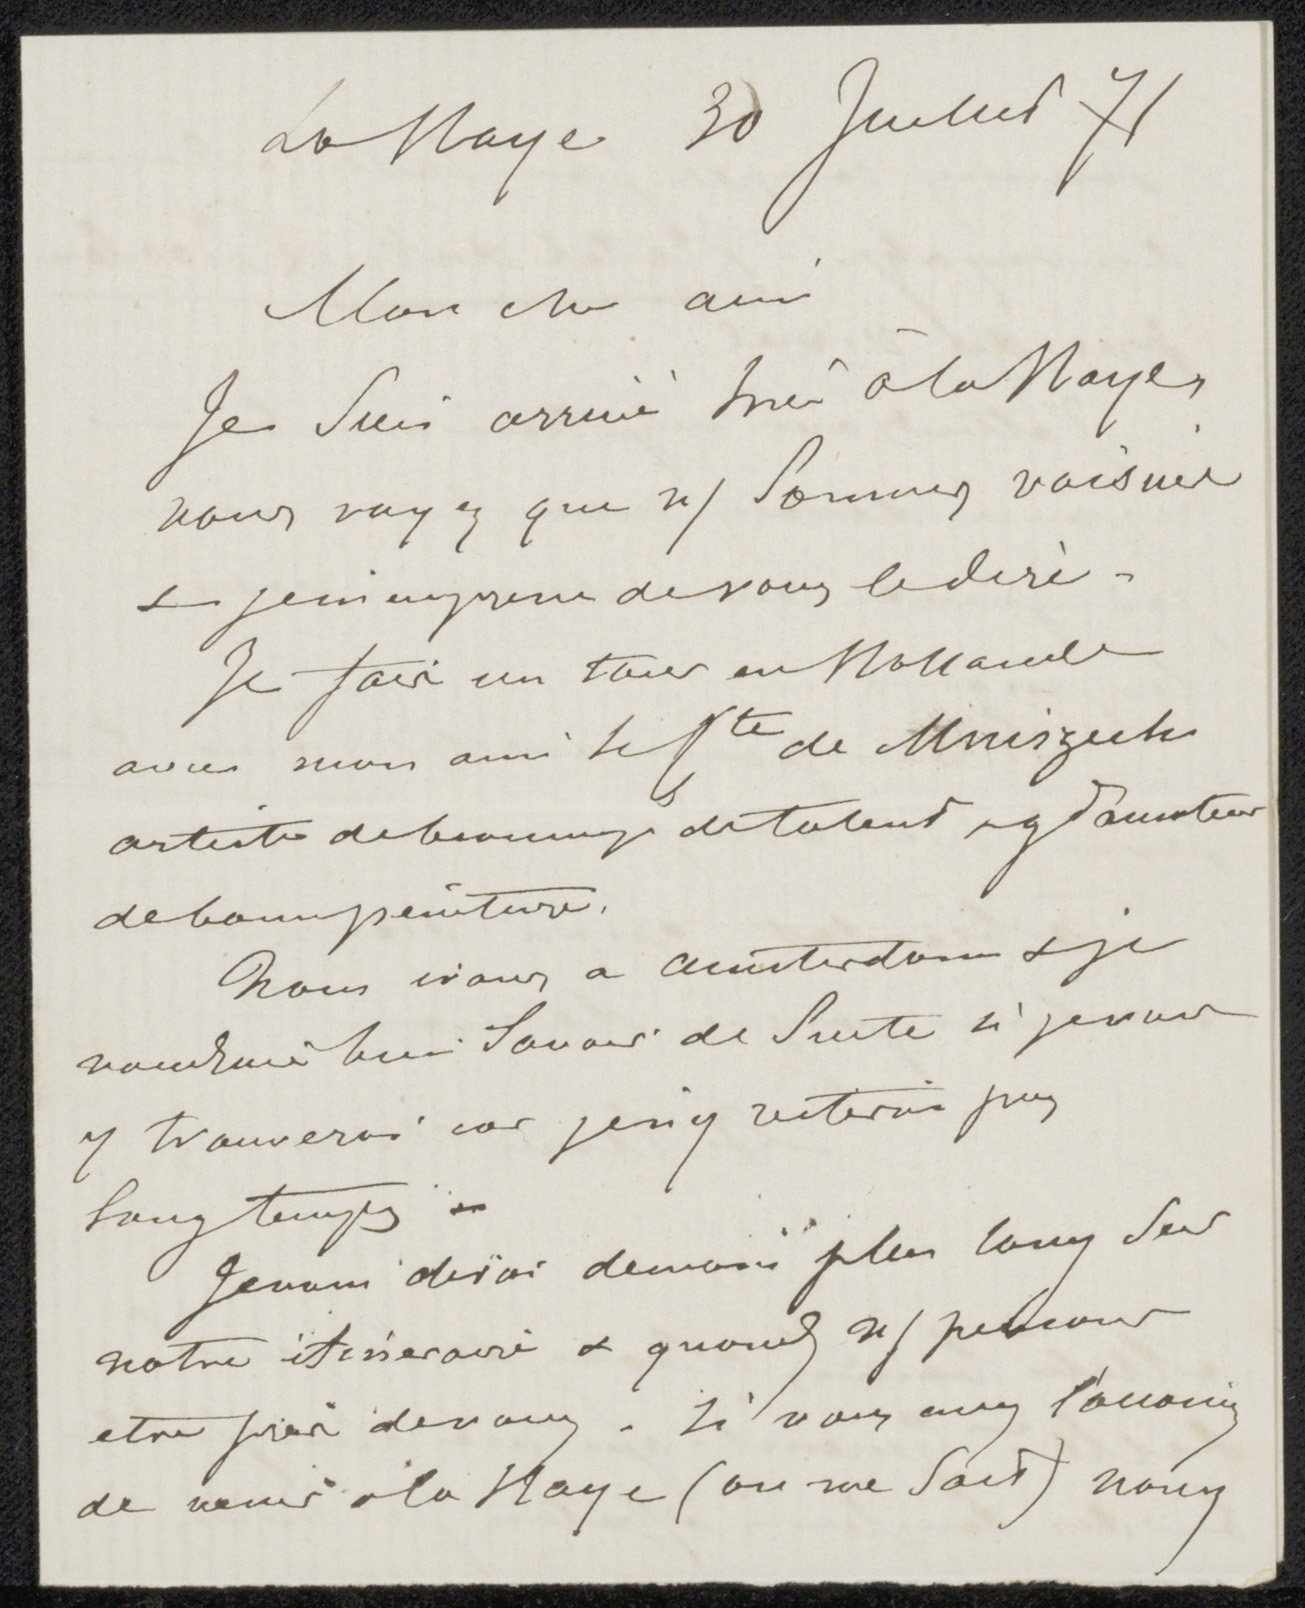 La Haye 30 Juillet 71
Mon cher ami
Je suis arrivé hier à la Haye,
vous voyez que n/ sommes voisins
& je m'empresse de vous le dire –
Je fais un tour en Hollande
avec mon ami le Cte de Mniszech
artiste de beaucoup de talent & gd amateur
de bonne peinture.
Nous irons a Amsterdam & je
voudrais bien savoir de suite si je vous
y trouverai car je n'y resterai pas
longtemps –
Je vous dirai demain plus long sur
notre itineraire & quand n/ pensons
etre près de vous – Si vous avez l'occasion
de venir à la Haye (on ne sait) nous